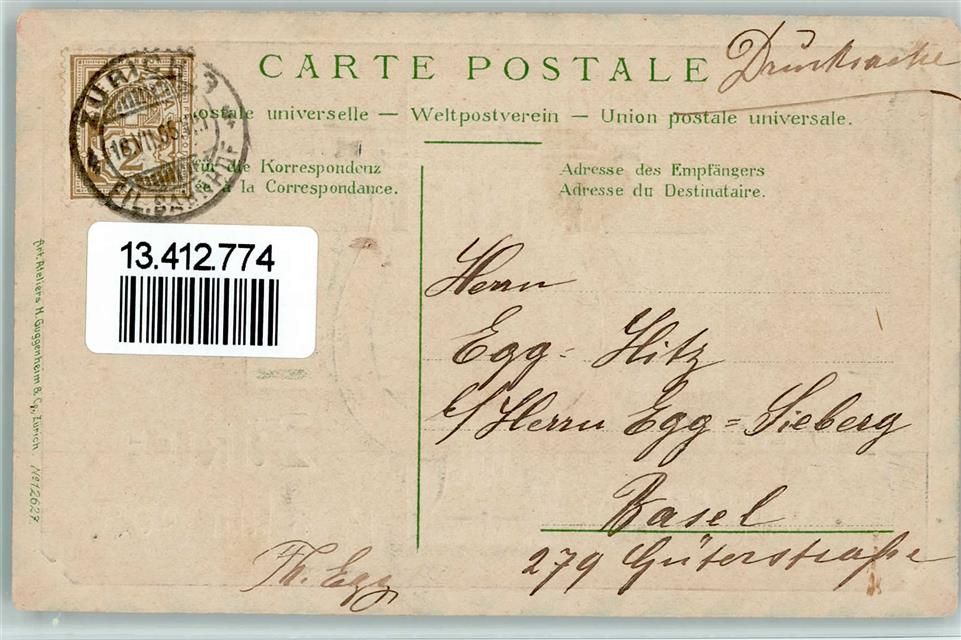 CARTE POSTALE
Drucksache
postale universelle — Weltpostverein — Union postale universale.
für die Korrespondenz
à la Correspondance.
Adresse des Empfängers
Adresse du Destinataire.
ZUERICH
16.VII.05
FIL. BAHNHOF
2
13.412.774
Art. Ateliers H. Guggenheim & Co., Zürich No 12627.
Herrn
Egg-Hitz
c/ Herrn Egg=Sieberg
Basel
279 Güterstraße
Th. Egg